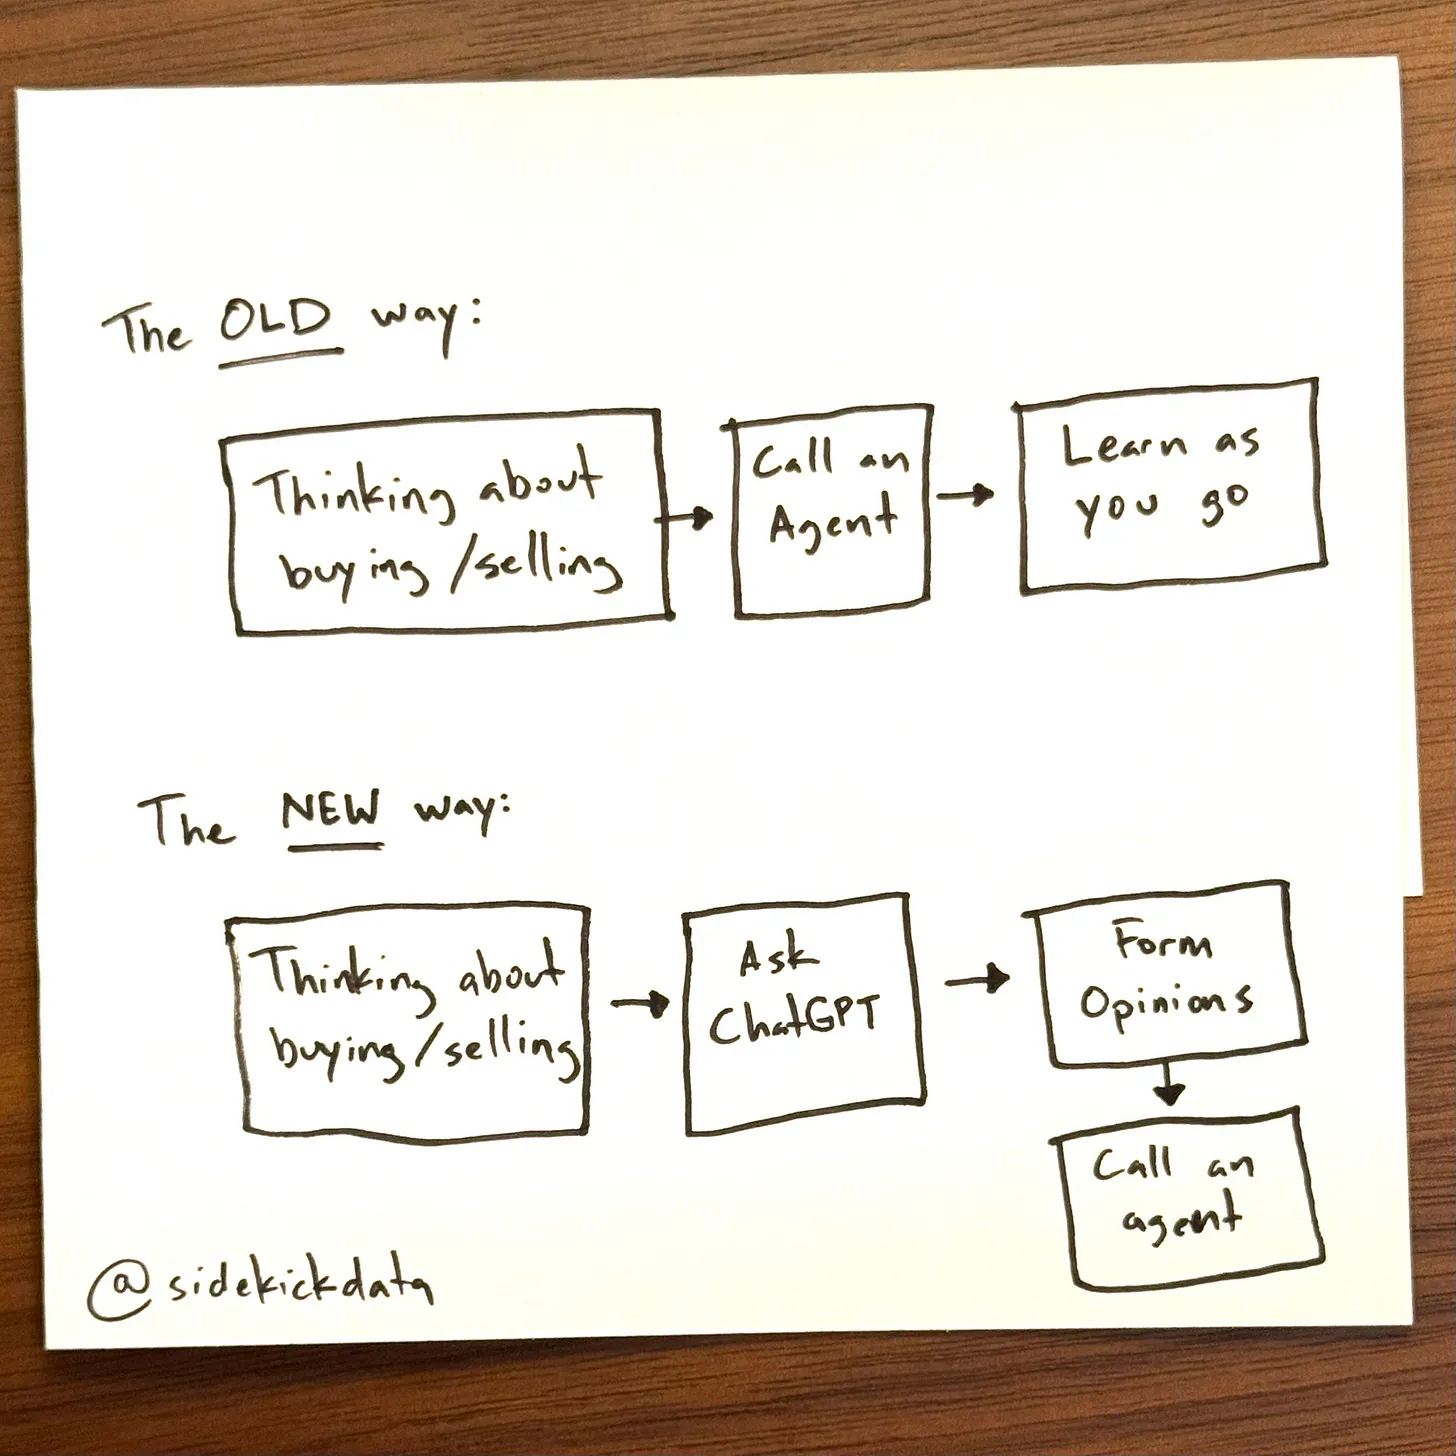 The OLD way:
Thinking about
buying/selling
Call an
Agent
Learn as
you go
The NEW way:
Thinking about
buying/selling
Ask
ChatGPT
Form
Opinions
Call an
agent
@sidekickdata